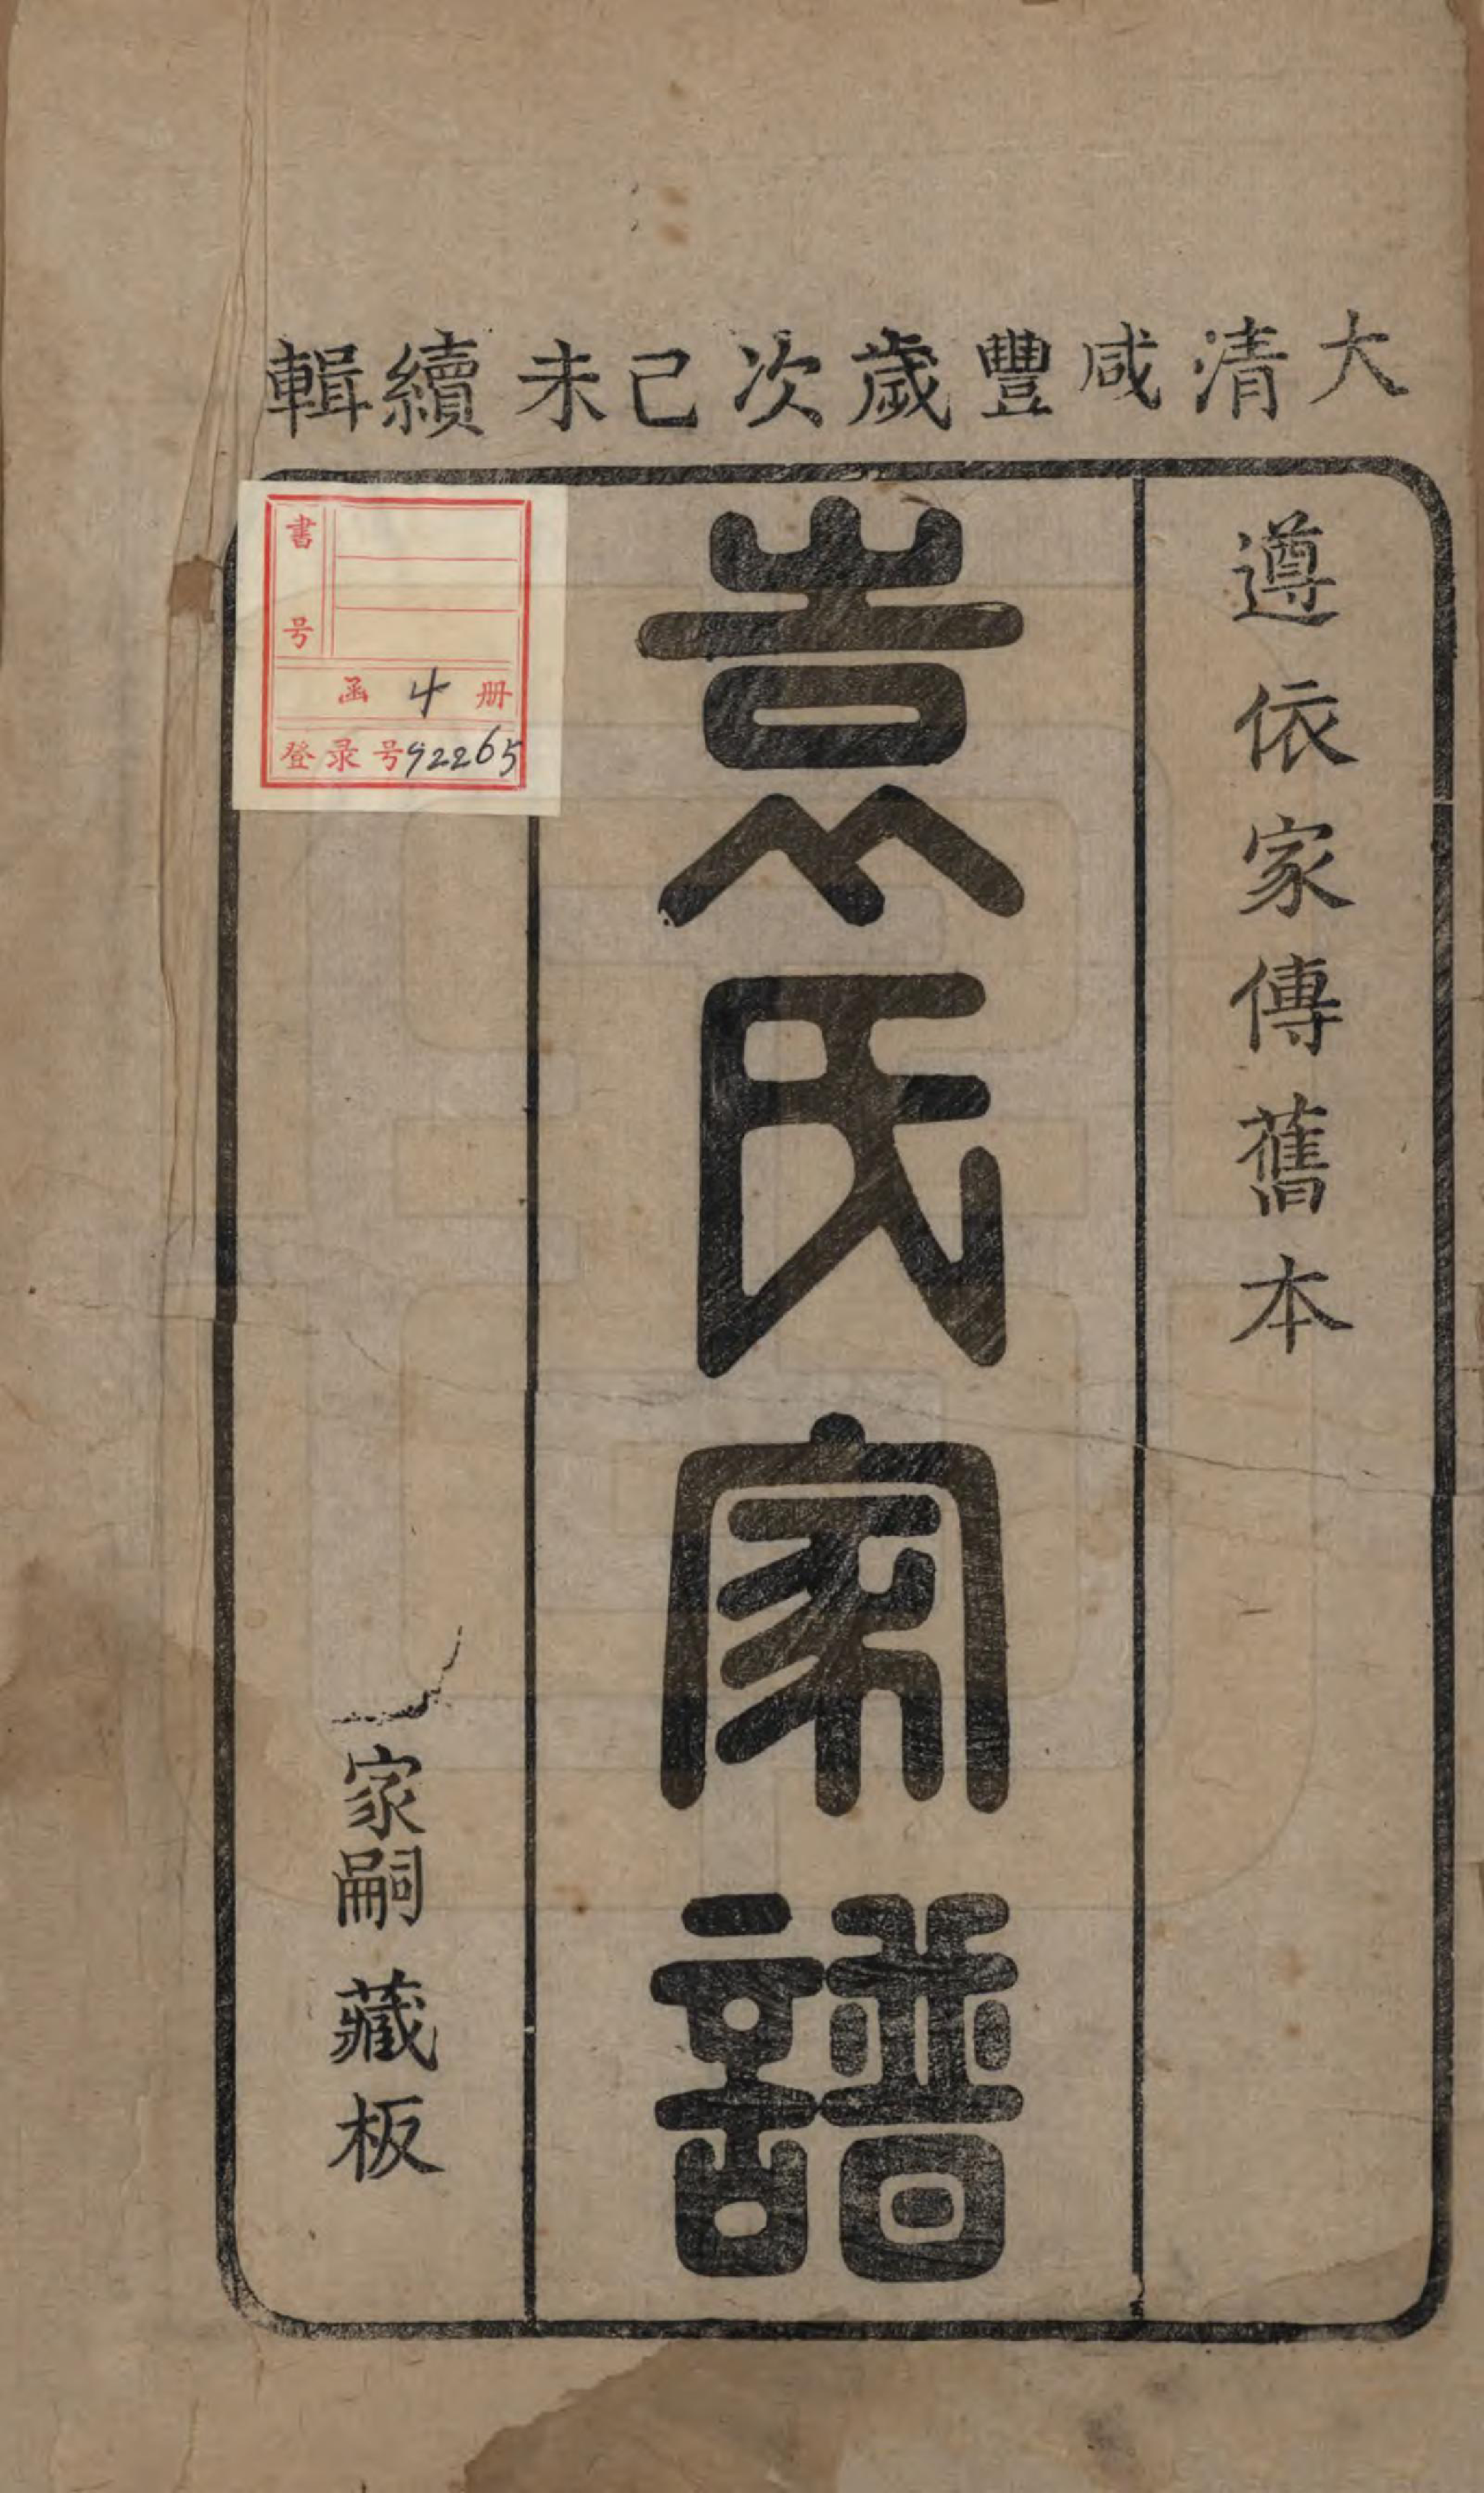 大清咸豐歲次己未續輯
遵依家傳舊本
袁氏家譜
家嗣藏板
書号
函 4 册
登录号92265